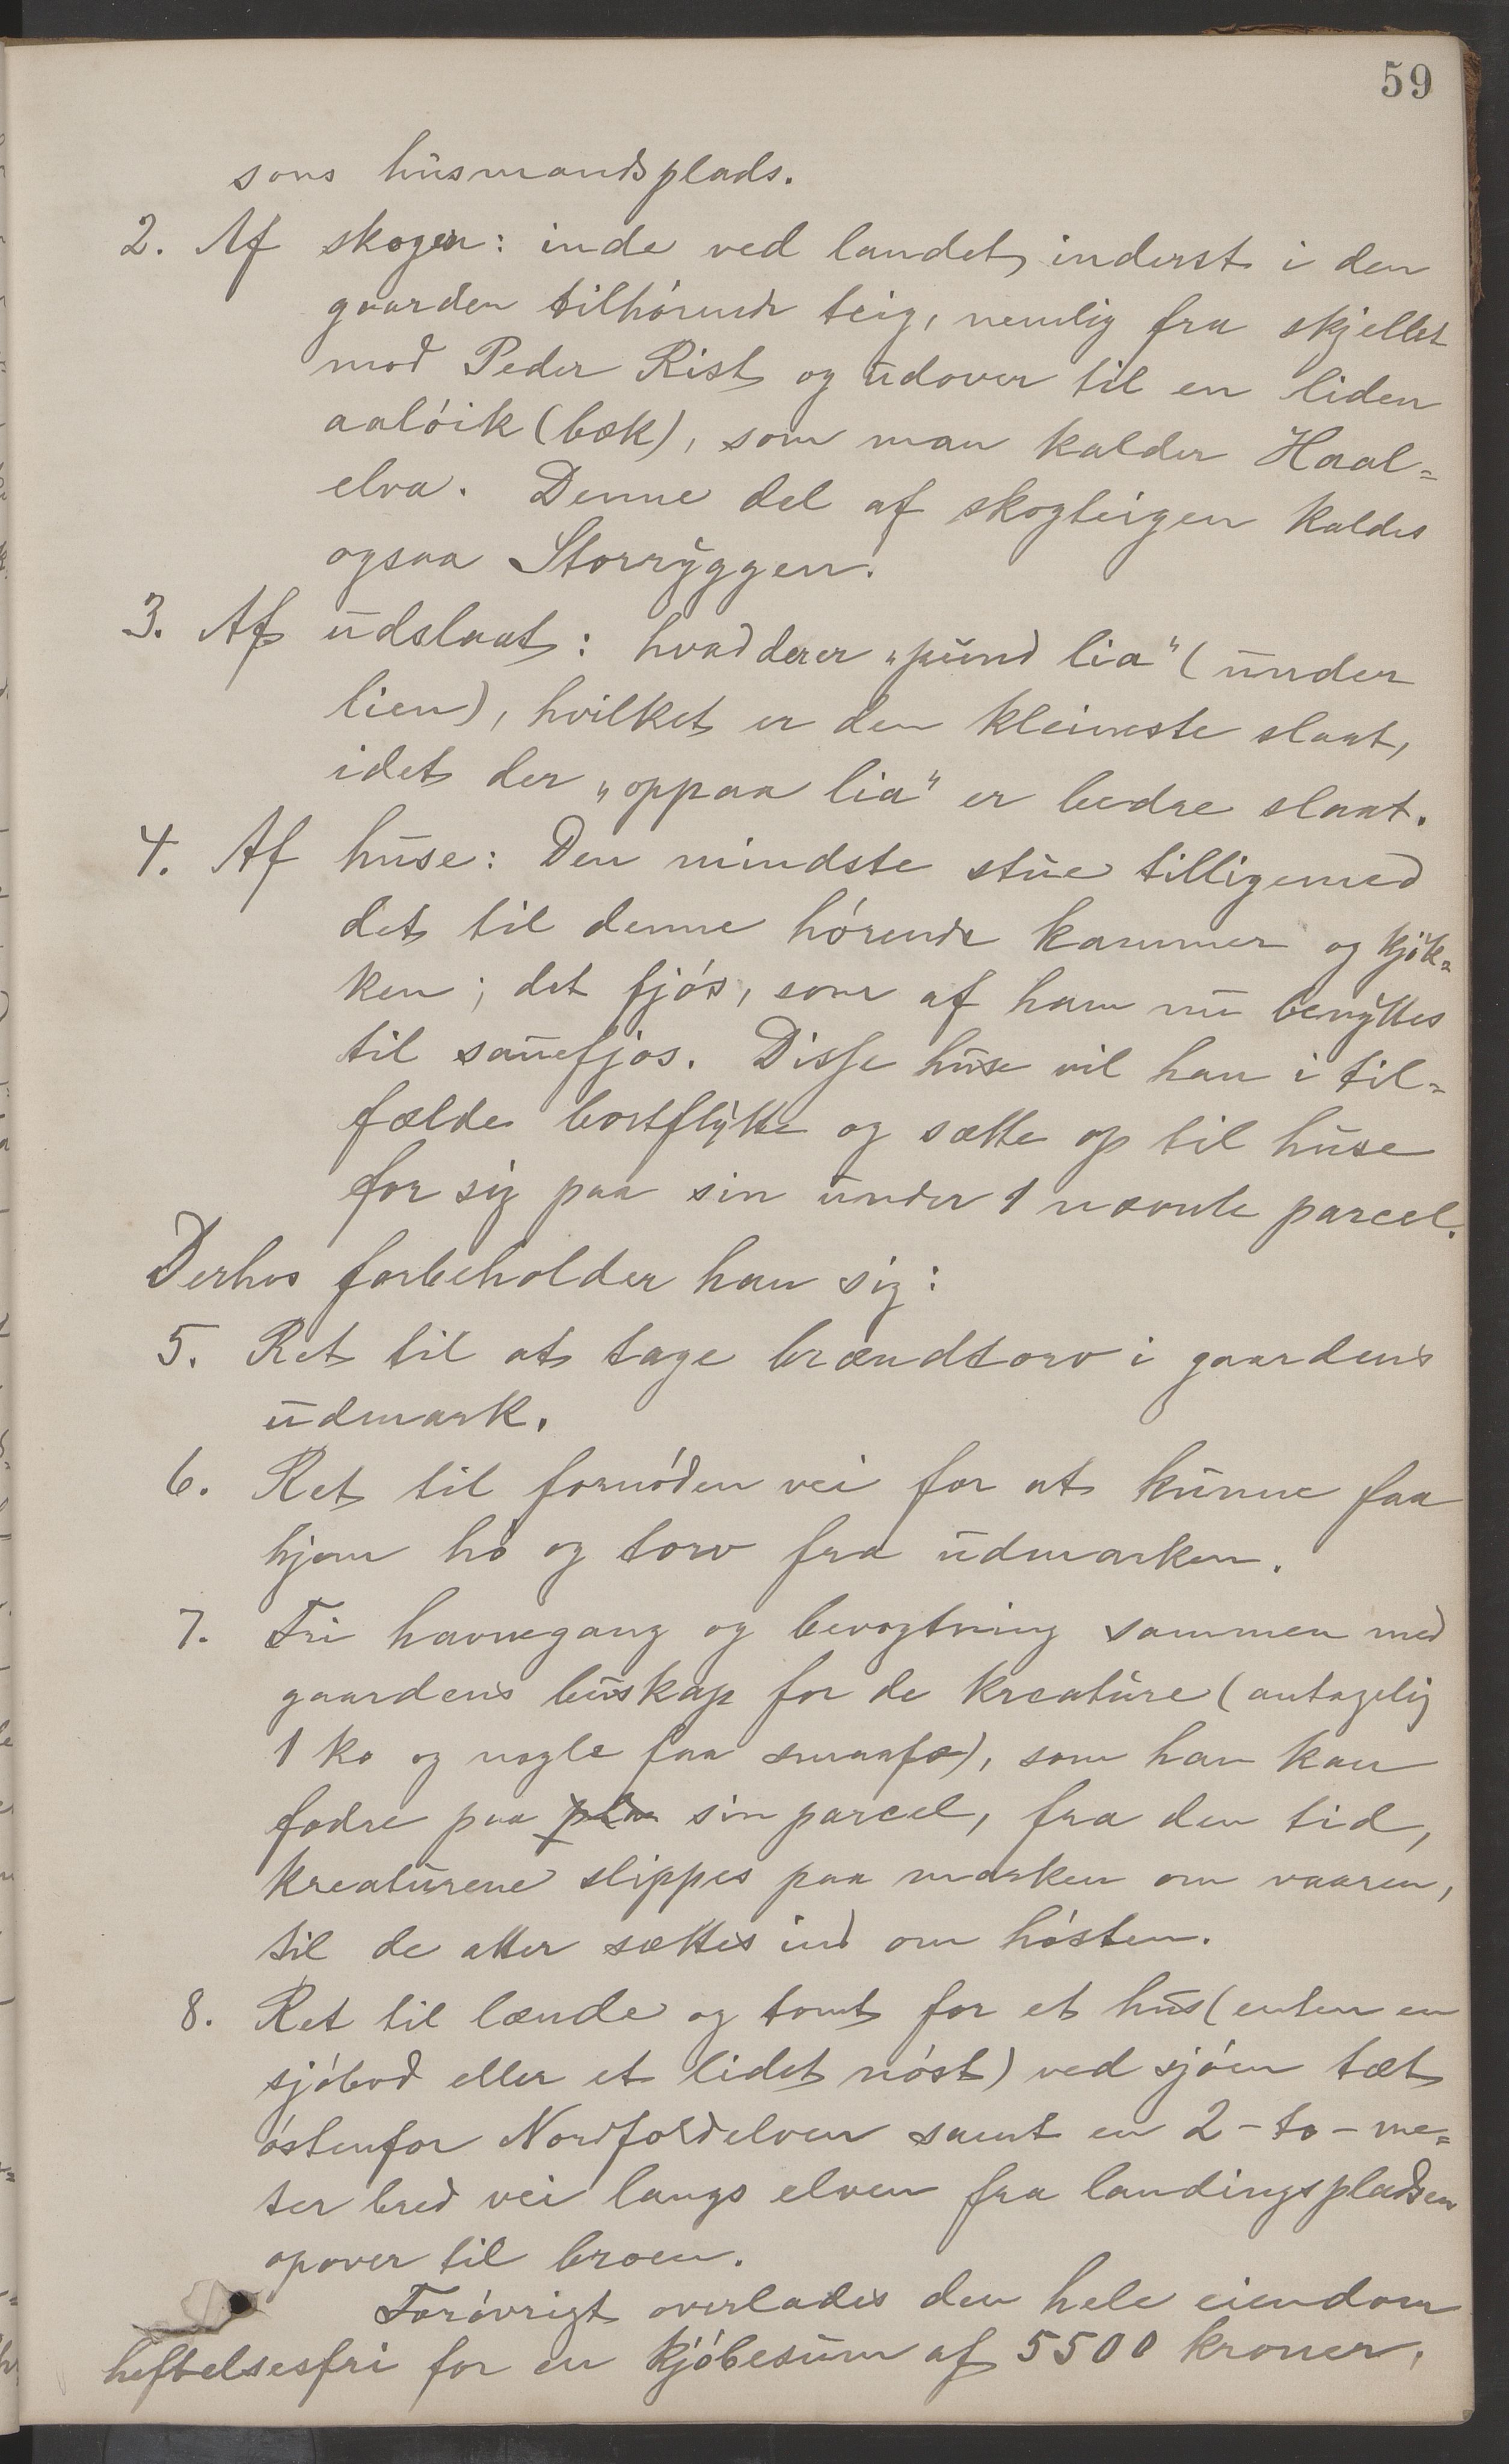 59
sons husmandsplads.
2. Af skogen: inde ved landet, inderst i den
gaarden tilhórende teig, nemlig fra skjellet
mod Peder Rist og udover til en liden
aalóik (bæk), som man kalder Haal=
elva. Denne del af skogteigen kaldes
ogsaa Storryggen.
3. Af udslaat: hvad der er "pund lia" (under
lien), hvilket er den kleineste slaat,
idet der "oppaa lia" er bedre slaat.
4. Af huse: Den mindste stue tilligemed
det til denne hórende kammer og kjók=
ken; det fjós, som af ham nu benyttes
til sauefjos. Disse huse vil han i til=
fælde bortflytte og sætte op til huse
for sig paa sin under 1 nævnte parcel.
Derhos forbeholder han sig:
5. Ret til at tage brændtorv i gaardens
udmark.
6. Ret til fornóden vei for at kunne faa
hjem hó og torv fra udmarken.
7. Fri havnegang og bevogtning sammen med
gaardens buskap for de kreature (antagelig
1 ko og nogle faa smaafæ), som han kan
fodre paa sin parcel, fra den tid,
kreaturene slippes paa marken om vaaren,
til de atter sættes ind om hósten.
8. Ret til lænde og tomt for et hus (enten en
sjóbod eller et lidet nóst) ved sjóen tæt
óstenfor Nordfoldelven samt en 2 - to - me=
ter bred vei langs elven fra landingspladsen
opover til broen.
Foróvrigt overlades den hele eiendom
heftelsesfri for en kjóbesum af 5500 kroner.